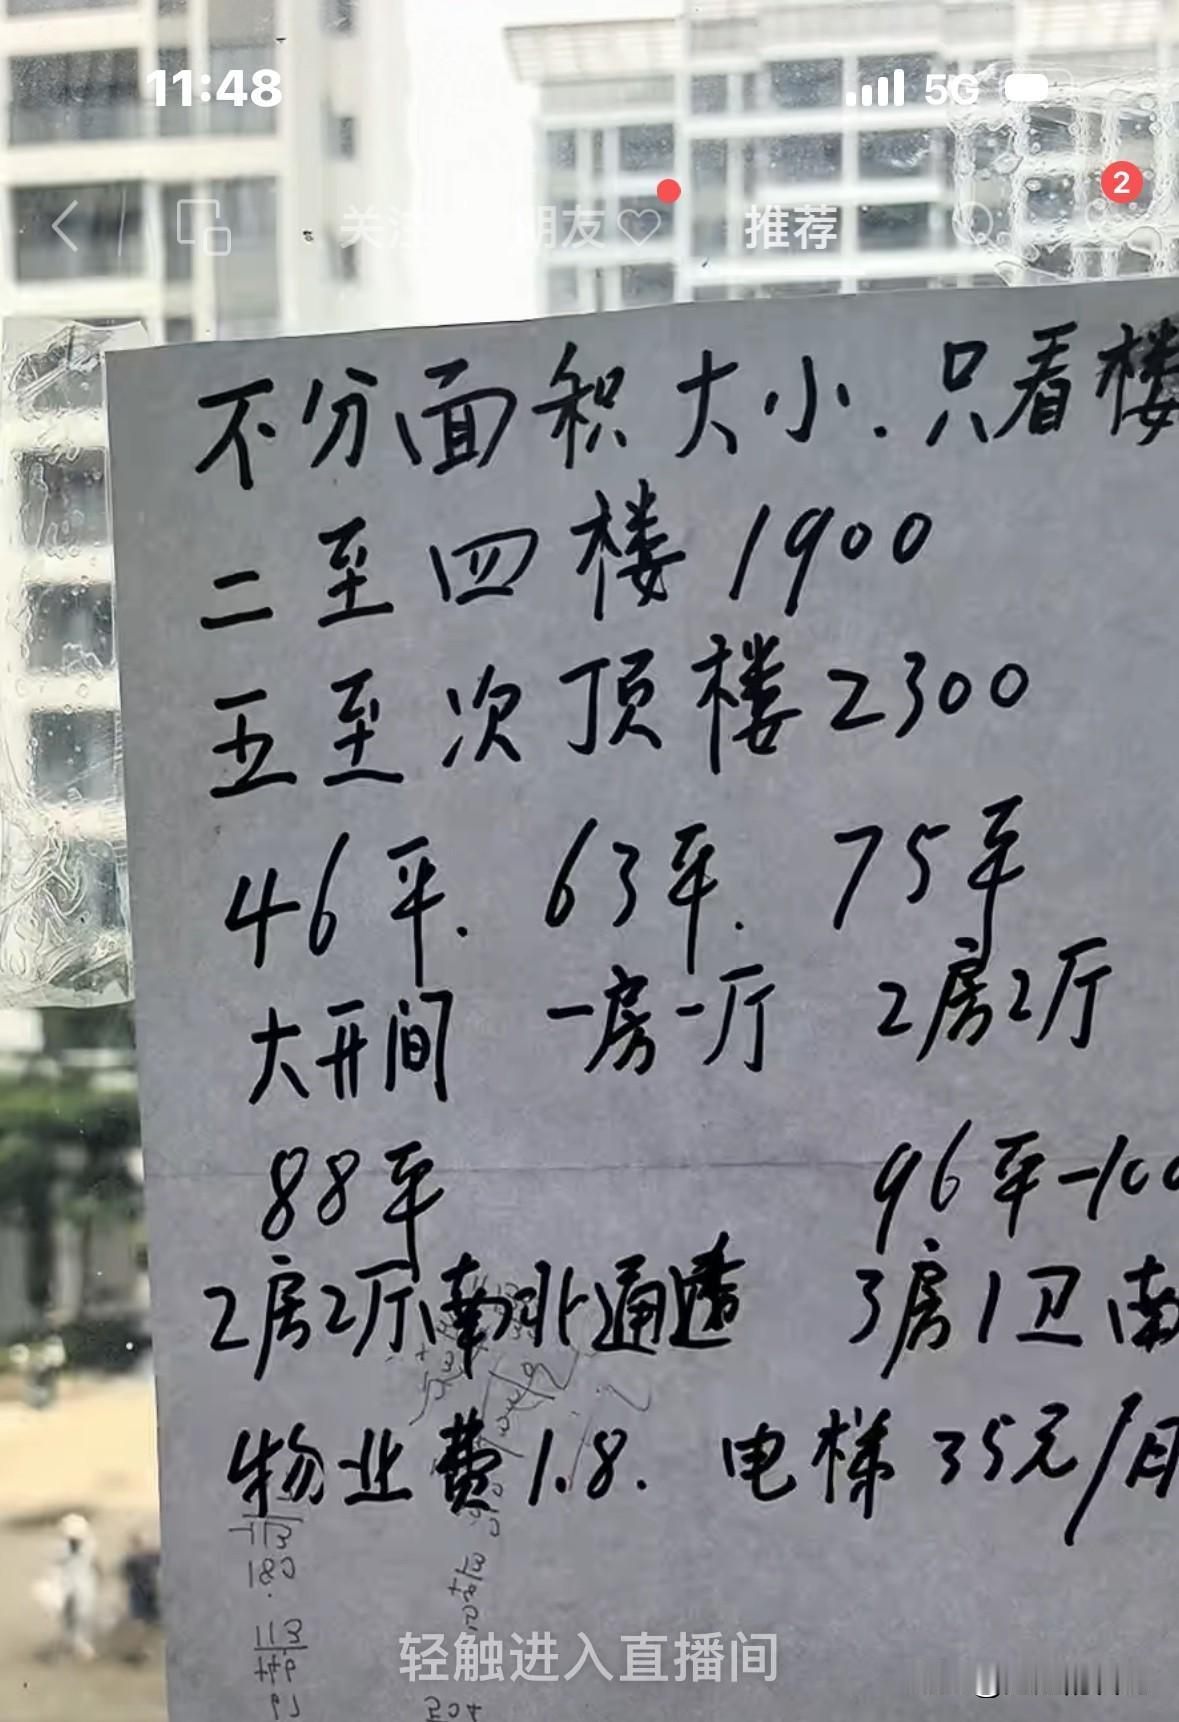 11:48
5G
2
关注 朋友♡ 推荐
不分面积大小.只看楼
二至四楼 1900
五至次顶楼 2300
46平. 63平. 75平
大开间 一房一厅 2房2厅
88平 96平-100
2房2厅南北通透 3房1卫南
物业费1.8. 电梯35元/月
轻触进入直播间